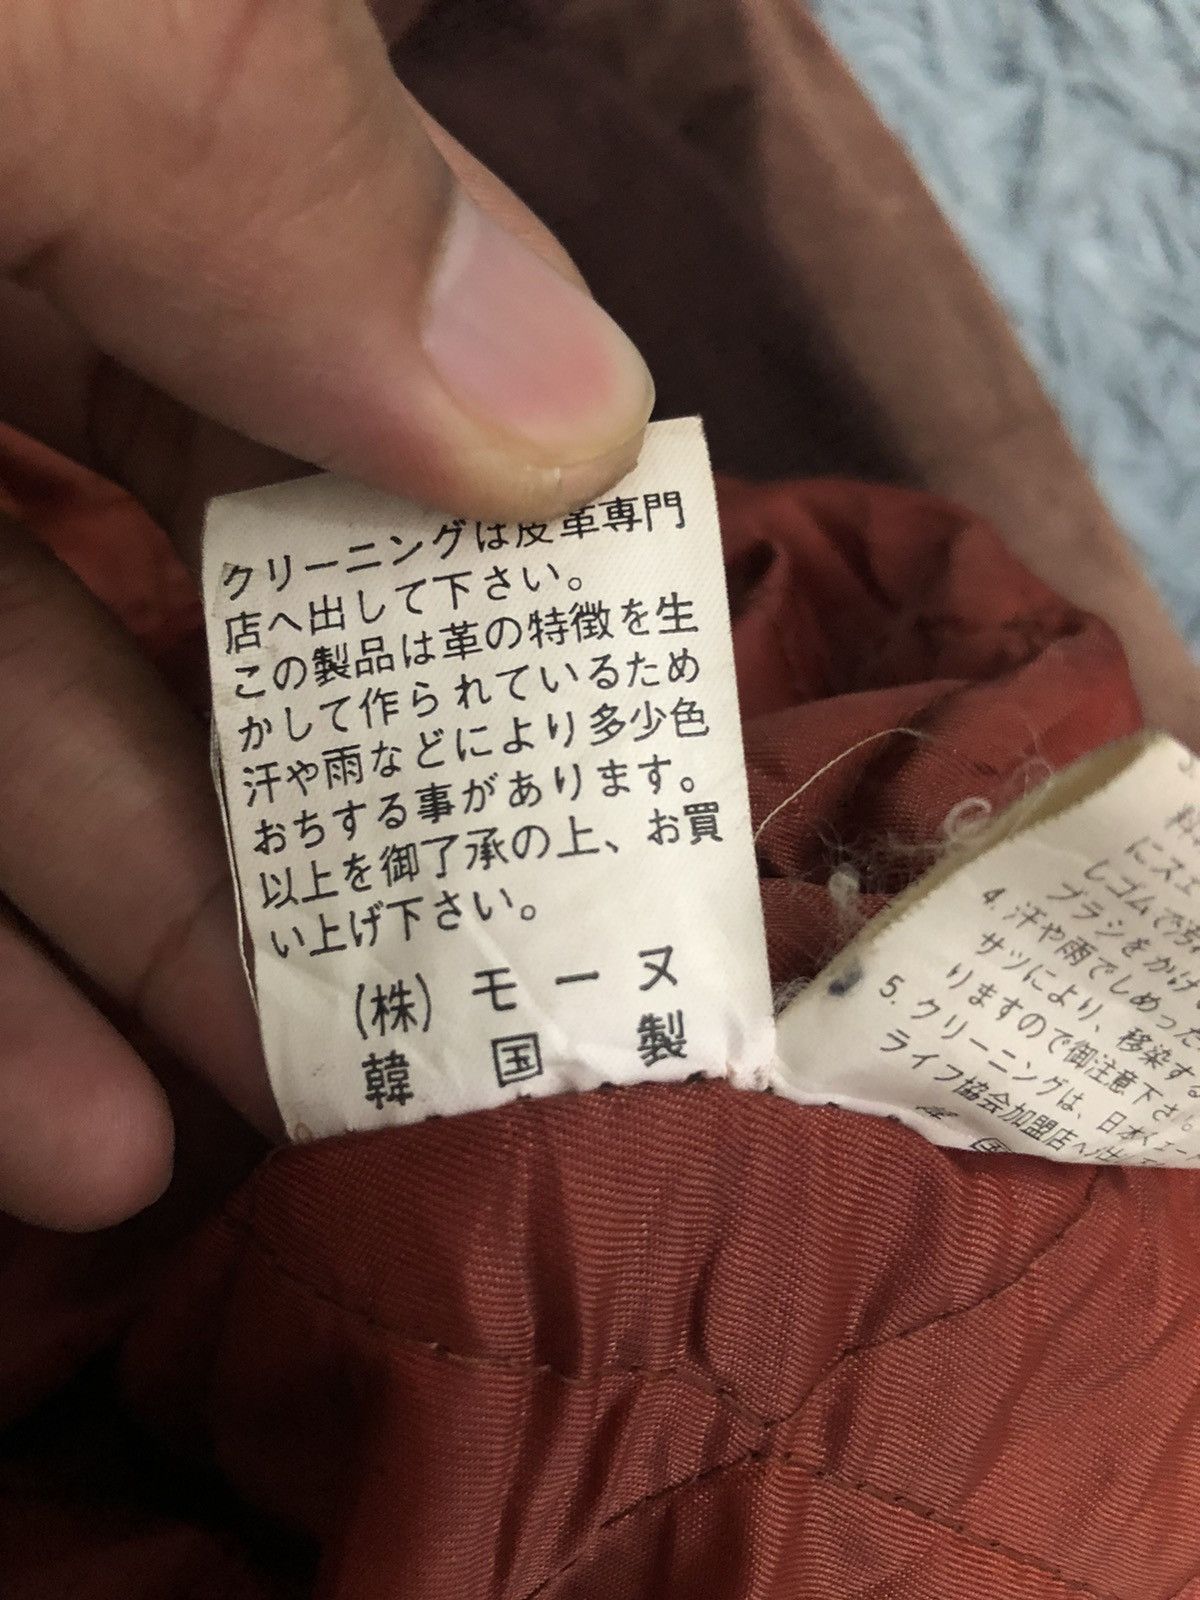 クリーニングは皮革専門
店へ出して下さい。
この製品は革の特徴を生
かして作られているため
汗や雨などにより多少色
おちする事があります。
以上を御了承の上、お買
い上げ下さい。
(株) モーヌ
韓国製
3.
にスエ
しゴムで汚
ブラシをかけ
4. 汗や雨でしめった
サツにより、移染する
りますので御注意下さ
5. クリーニングは、日本
ライフ協会加盟店へ